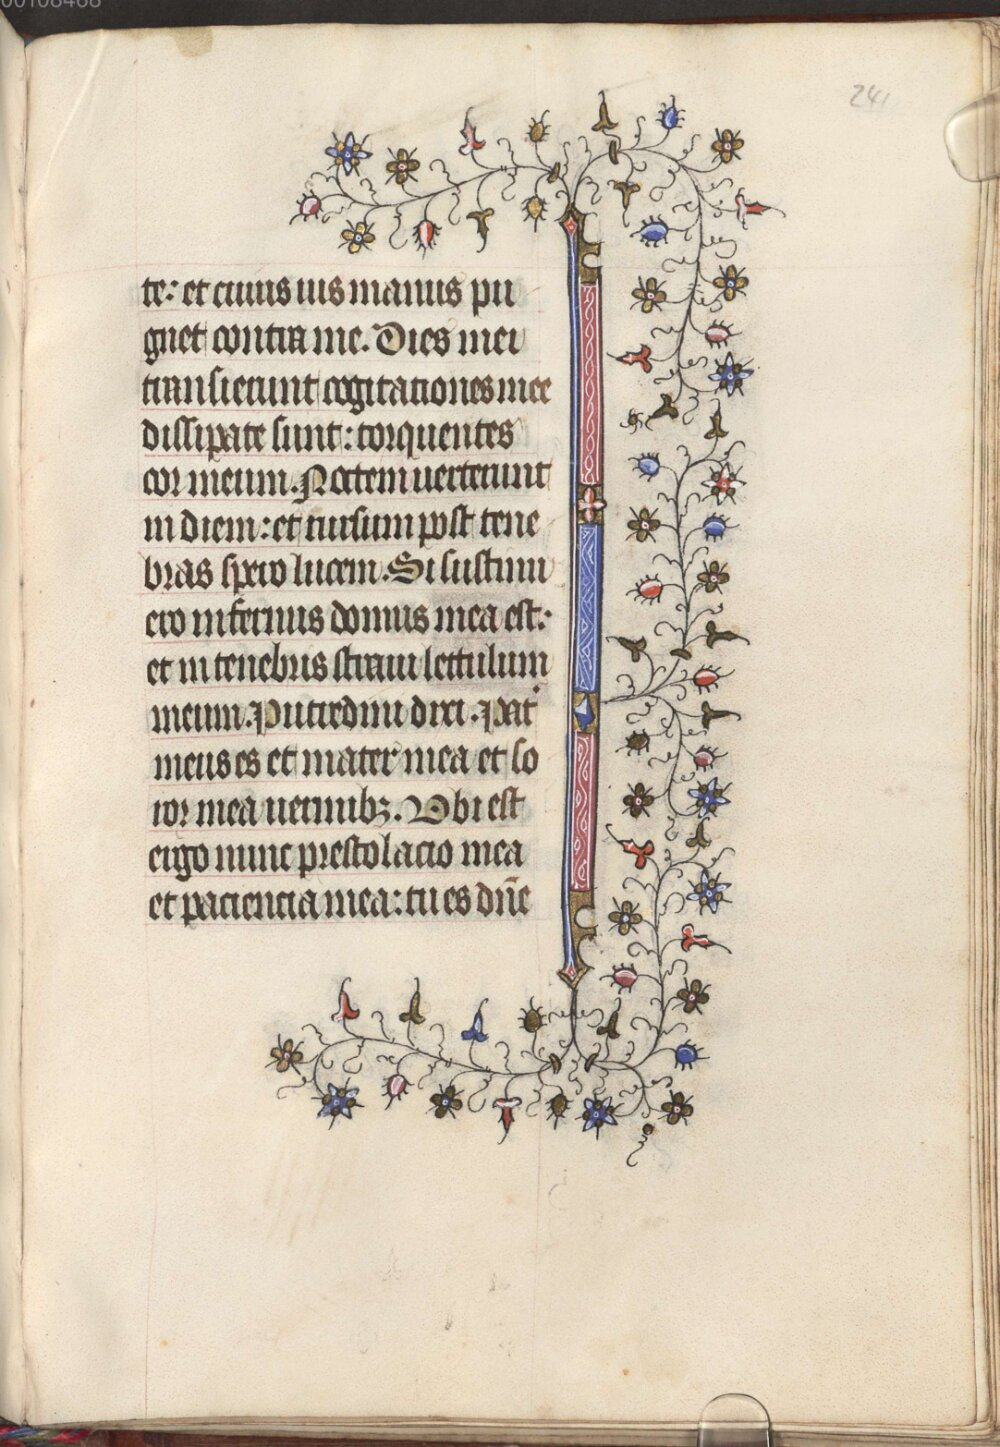 00108468
241
te: et cuius uis manus pu
gnet contra me. Dies mei
transierunt cogitationes mee
dissipate sunt: torquentes
cor meum. Noctem uerterunt
in diem: et rursum post tene
bras spero lucem. Si sustinu
ero infernus domus mea est:
et in tenebris straui lectulum
meum. Putredini dixi. Pat̕
meus es et mater mea et so
ror mea uermibꝫ. Ubi est
ergo nunc prestolacio mea
et paciencia mea: tu es dn̄e